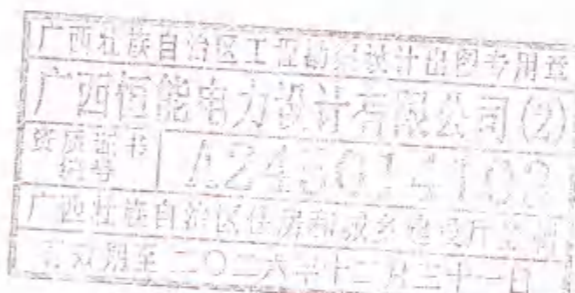 广西壮族自治区工程勘察设计出图专用章
广西恒能电力设计有限公司(2)
资质证书
编号
广西壮族自治区住房和城乡建设厅监制
有效期至二〇二六年十二月三十一日